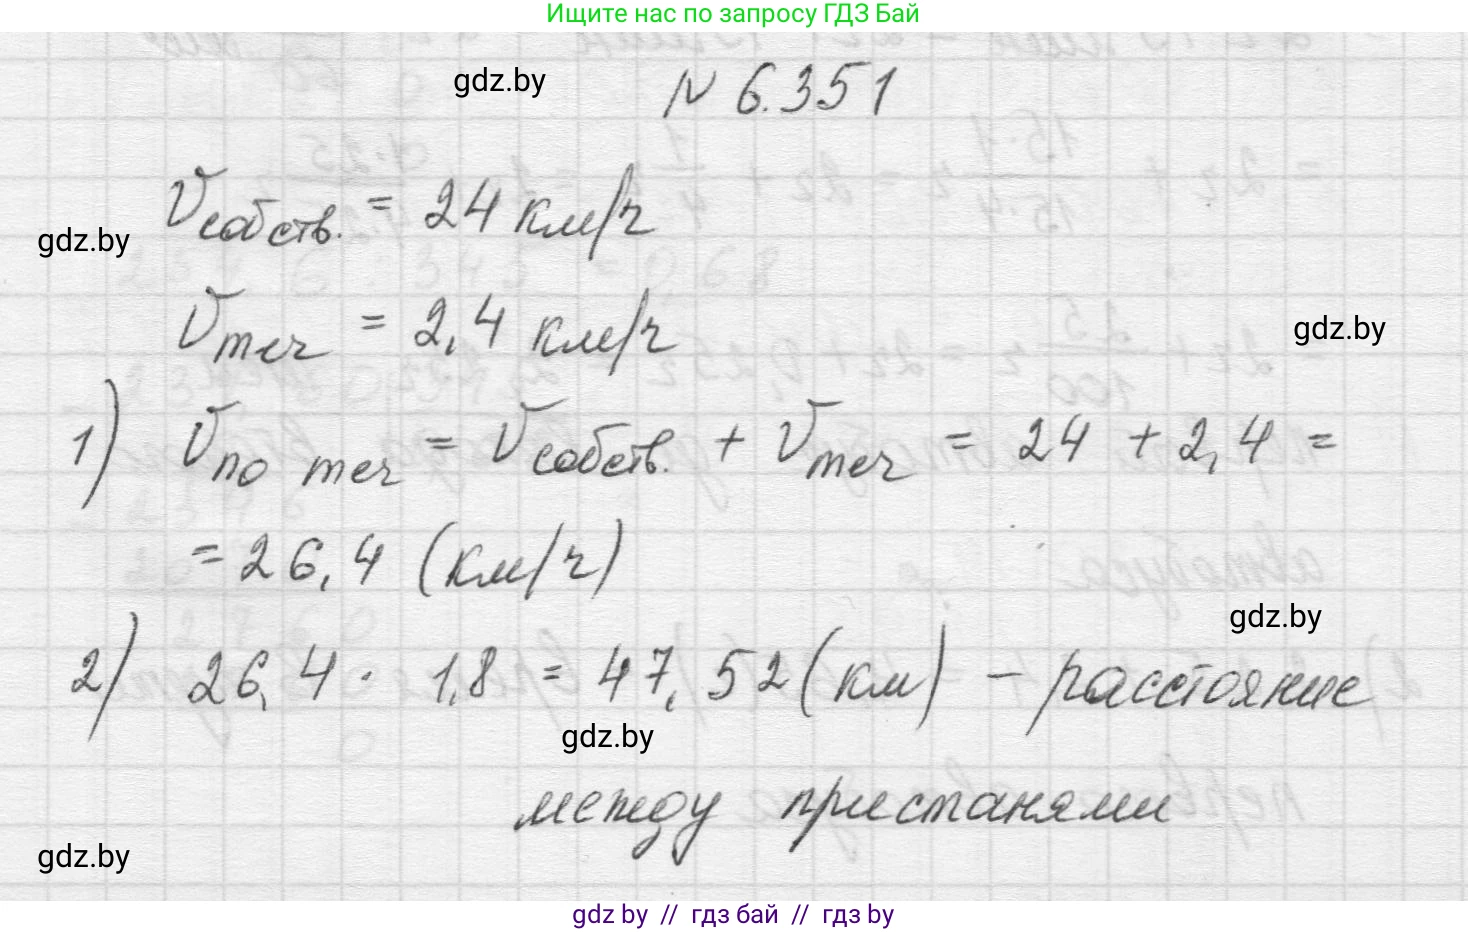 Ищите нас по запросу ГДЗ Бай
gdz.by
N 6.351
Vсобств. = 24 км/ч
gdz.by
Vтеч = 2,4 км/ч
gdz.by
1) Vпо теч = Vсобств. + Vтеч = 24 + 2,4 =
= 26,4 (км/ч)
gdz.by
2) 26,4 · 1,8 = 47,52 (км) – расстояние
gdz.by
между пристанями
gdz.by
gdz by // гдз бай // гдз by